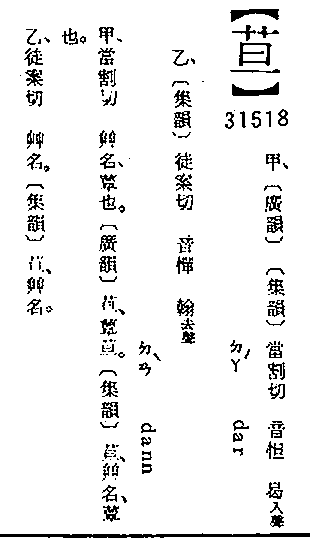 【䒟】
31518
甲、〔廣韻〕〔集韻〕當割切 音怛 曷入聲
ㄉㄚˊ dar
乙、〔集韻〕徒案切 音憚 翰去聲
ㄉㄢˋ dann
甲、當割切 艸名、蕈也。〔廣韻〕䒟、蕈䒟。〔集韻〕䒟、艸名、蕈
也。
乙、徒案切 艸名。〔集韻〕䒟、艸名。